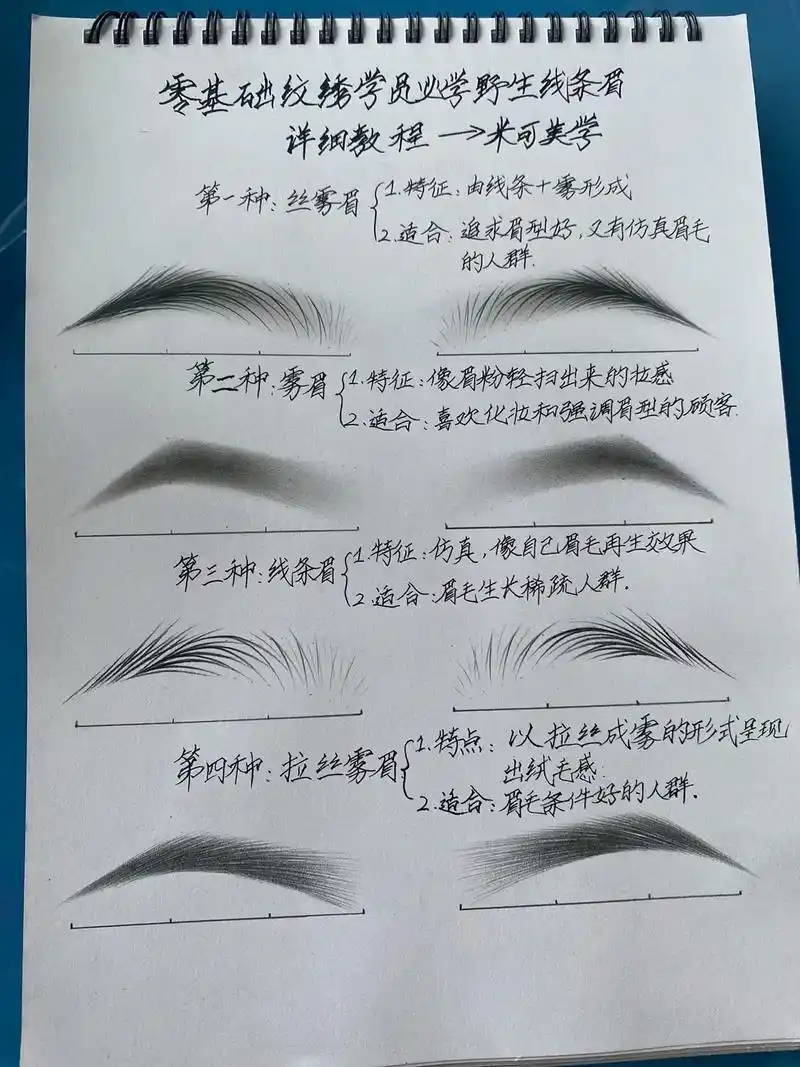 零基础纹绣学员必学野生线条眉
详细教程→米可美学
第一种:丝雾眉
1.特征:由线条+雾形成
2.适合:追求眉型好,又有仿真眉毛
的人群.
第二种:雾眉
1.特征:像眉粉轻扫出来的妆感
2.适合:喜欢化妆和强调眉型的顾客.
第三种:线条眉
1.特征:仿真,像自己眉毛再生效果
2.适合:眉毛生长稀疏人群.
第四种:拉丝雾眉
1.特点:以拉丝成雾的形式呈现
出绒毛感.
2.适合:眉毛条件好的人群.